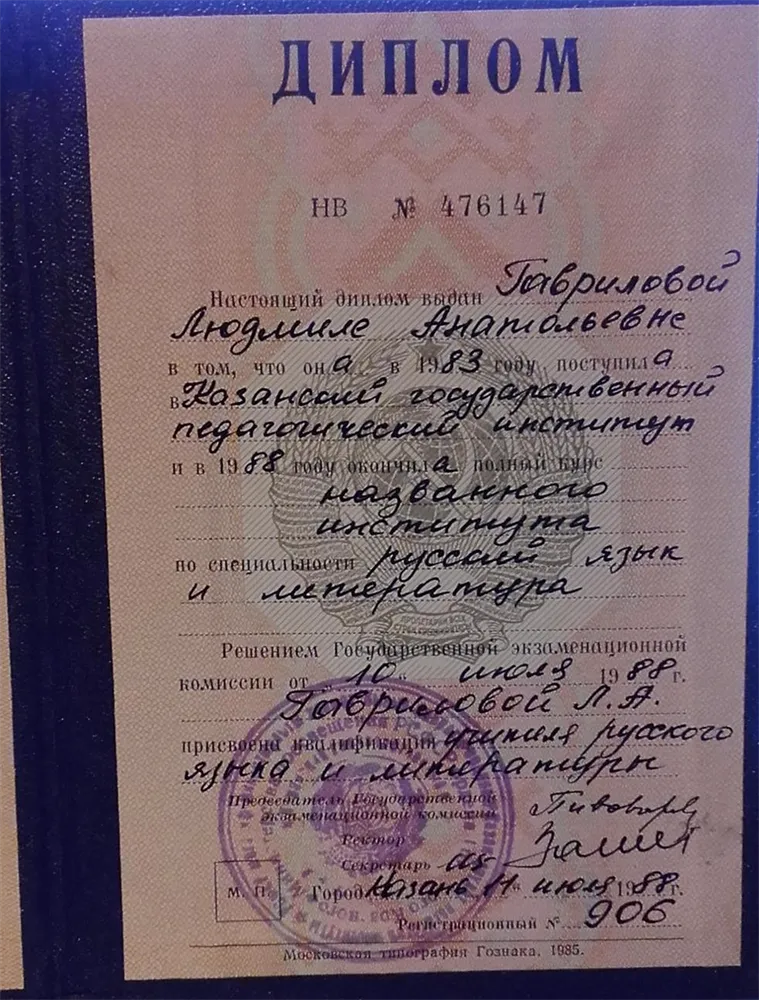 ДИПЛОМ
НВ № 476147
Настоящий диплом выдан Гавриловой
Людмиле Анатольевне
в том, что она в 1983 году поступила
в Казанский государственный
педагогический институт
и в 1988 году окончила полный курс
названного
института
по специальности русский язык
и литература
Решением Государственной экзаменационной
комиссии от „10“ июля 1988 г.
Гавриловой Л.А.
присвоена квалификация учителя русского
языка и литературы
Председатель Государственной
экзаменационной комиссии
Ректор
Секретарь
М. П. Город Казань 11 “ июля 1988 г.
Регистрационный № 906
Московская типография Гознака. 1985.